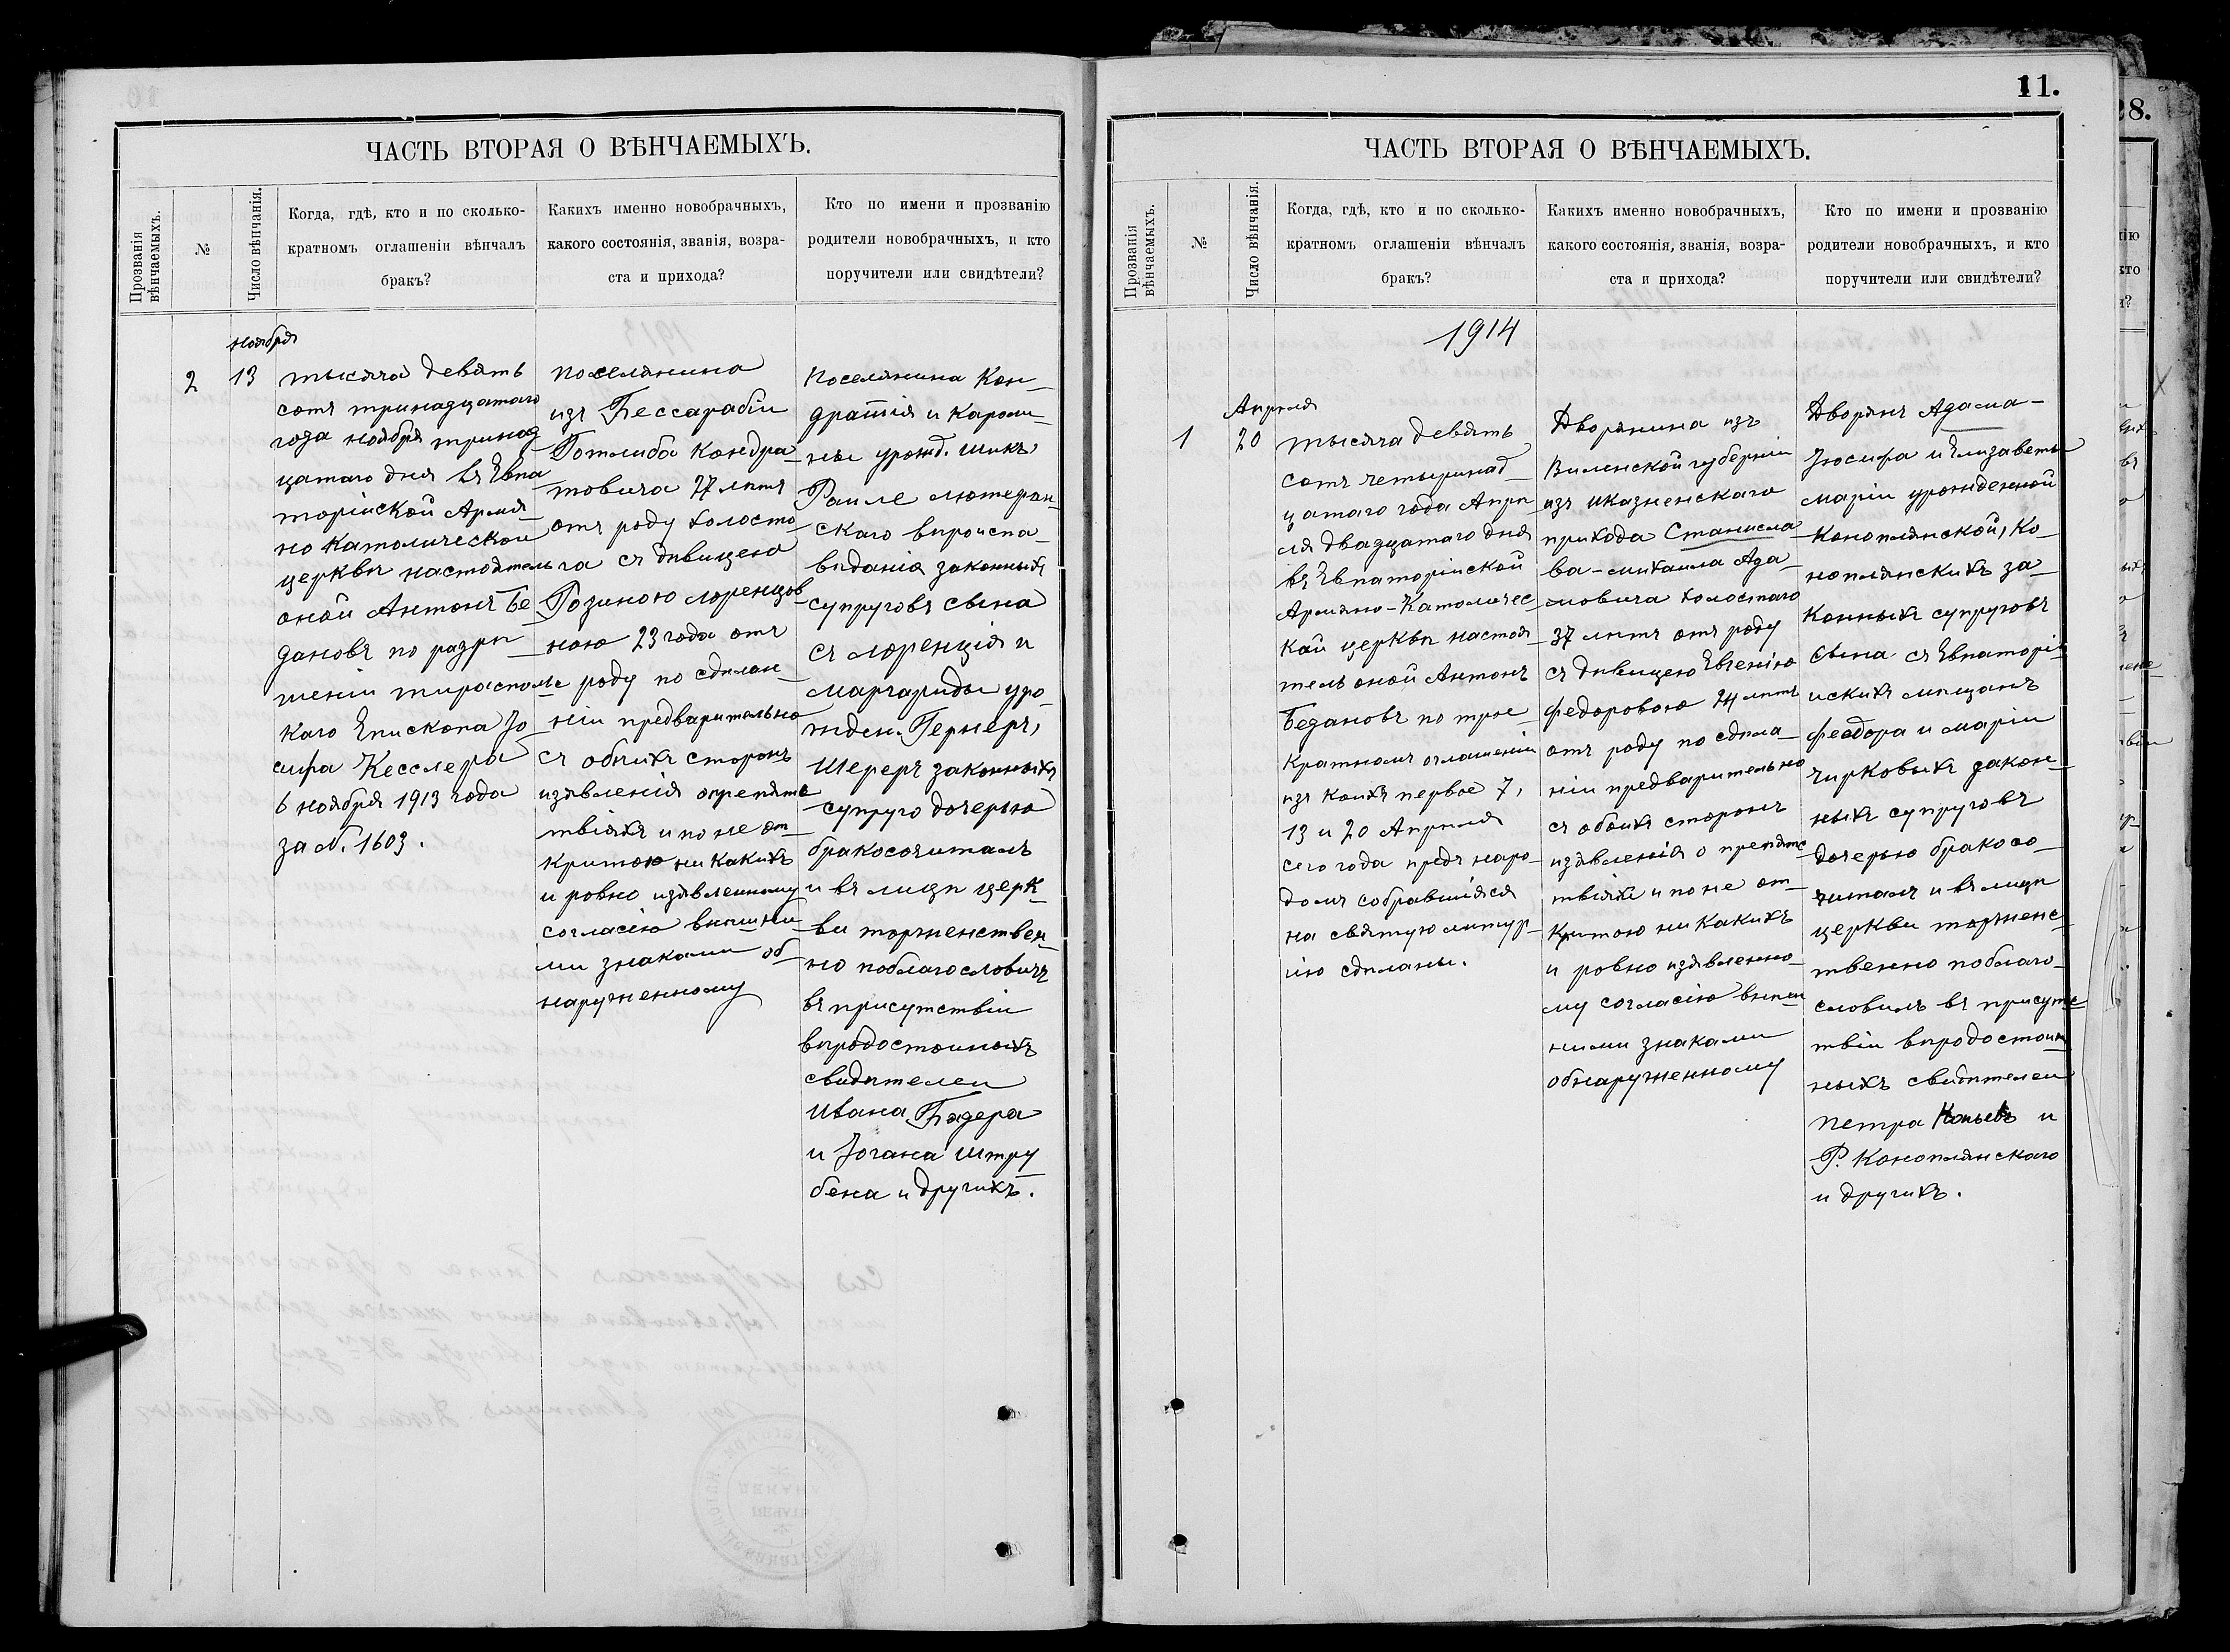 ЧАСТЬ ВТОРАЯ О ВѢНЧАЕМЫХЪ.
Прозванія вѣнчаемыхъ.
№
Число вѣнчанія.
Когда, гдѣ, кто и по сколько-
кратномъ оглашеніи вѣнчалъ
бракъ?
Какихъ именно новобрачныхъ,
какого состоянія, званія, возра-
ста и прихода?
Кто по имени и прозванію
родители новобрачныхъ, и кто
поручители или свидѣтели?
ноября
2
13
тысяча девять
сотъ тринадцатаго
года ноября тринад
цатаго дня въ Евпа
торійской Армя-
но Католической
церкви настоятель
оной Антонъ Бе
дановъ по разрѣ
шеніи тираспольс
каго Епископа Іо
сифа Кесслера
6 ноября 1913 года
за №. 1603.
поселянина
изъ Бессарабіи
Готлиба Кондра
товича 77 лѣтъ
отъ роду холосто
га съ дѣвицею
Розиною Лоренцов
ною 23 года отъ
роду по сдѣлан-
ніи предварительно
съ обѣихъ сторонъ
изъявленія опрепятс
твіяхъ и по не от-
критою ни какихъ
и ровно изъявленному
согласію внѣшни
ми знаками об
наруженному
поселянина Кон-
дратія и Кароли-
ны урожд. Шикъ,
Рапле лютеран-
скаго вѣроиспа-
вѣданія законныхъ
супруговъ сына
съ Лоренція и
Маргариды уро-
жден. Гернеръ,
Шереръ законныхъ
супруго дочерью
бракосочиталъ
и въ лицѣ церк-
ви торженствен-
но поблагословичъ
въ присутствіи
вѣродостоиныхъ
свидѣтелеи
Ивана Бадера
и Іогана Штру
бена и другихъ.
11.
ЧАСТЬ ВТОРАЯ О ВѢНЧАЕМЫХЪ.
Прозванія вѣнчаемыхъ.
№
Число вѣнчанія.
Когда, гдѣ, кто и по сколько-
кратномъ оглашеніи вѣнчалъ
бракъ?
Какихъ именно новобрачныхъ,
какого состоянія, званія, возра-
ста и прихода?
Кто по имени и прозванію
родители новобрачныхъ, и кто
поручители или свидѣтели?
1914
Апрѣля
1
20
тысяча девять
сотъ четыринад-
цатаго года Апрѣ
ля двадцатаго дня
въ Евпаторійской
Армяно-Католичес
кой церкви настоя
тель оной Антонъ
Бедановъ по трое-
кратномъ оглашеніи
изъ коихъ первое 7,
13 и 20 Апрѣля
сего года предъ наро-
домъ собравшіяся
на святую литур-
гію сдѣланы.
Дворянина изъ
Виленской губерніи
изъ Иказненскаго
прихода Станисла
ва-Михаила Ада-
мовича холостаго
37 лѣтъ отъ роду
съ дѣвицею Евгеніею
Федоровою 24 лѣтъ
отъ роду по сдѣла-
ніи предварительно
съ обоихъ сторонъ
изъявленія о препятс
твіяхъ и по не от-
критою ни какихъ
и ровно изъявленно-
му согласію внѣш
ними знаками
обнаруженному
Дворянъ Адама-
Іосифа и Елизаветы
Маріи урожденной
Коноплянской, Ко-
ноплянскихъ за-
конныхъ супруговъ
сына съ Евпаторій
искихъ мѣщанъ
Феодора и Маріи
Чирковыхъ закон-
ныхъ супруговъ
дочерью бракосо-
читалъ и въ лицѣ
церкви торженс-
твенно поблаго-
словилъ въ присутс
твіи вѣродостоин
ныхъ свидѣтелеи
Петра Копьевъ и
Р. Коноплянскаго
и другихъ.
28.